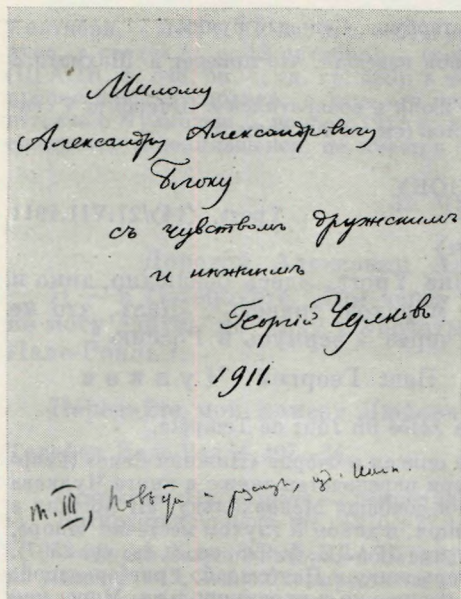 Милому
Александру Александровичу
Блоку
съ чувствомъ дружескимъ
и нѣжнымъ
Георгій Чулковъ.
1911.
т. III, и изд. Шип.